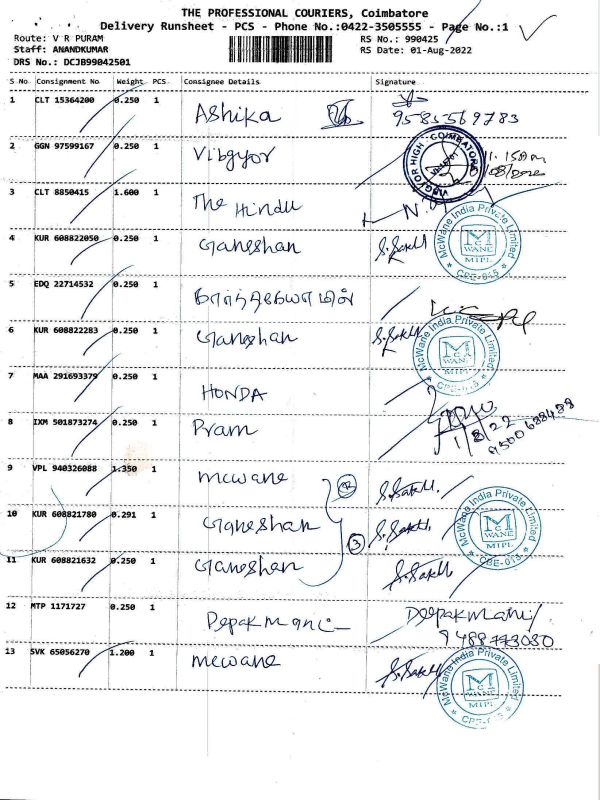 THE PROFESSIONAL COURIERS, Coimbatore
Delivery Runsheet - PCS - Phone No.:0422-3505555 - Page No.:1
Route: V R PURAM RS No.: 990425
Staff: ANANDKUMAR RS Date: 01-Aug-2022
DRS No.: DCJB99042501
S No Consignment No Weight PCS Consignee Details Signature
1 CLT 15364200 0.250 1 Ashika 9585569783
2 GGN 97599167 0.250 1 Vibgyor
VIBGYOR HIGH COIMBATORE
11.15am
3 CLT 8850415 1.600 1 The Hindu
4 KUR 608822050 0.250 1 Ganeshan S.Sakthi
McWane India Private Limited
MCWANE
MIPL
5 EDQ 22714532 0.250 1
6 KUR 608822283 0.250 1 Ganeshan S.Sakthi
McWane India Private Limited
MCWANE
MIPL
7 MAA 291693379 0.250 1 HONDA
8 IXM 501873274 0.250 1 Pram
1/8/22
9500688438
9 VPL 940326088 1.350 1 mcwane S.Sakthi
10 KUR 608821780 0.291 1 Ganeshan S.Sakthi
3
McWane India Private Limited
MCWANE
MIPL
CBE-015
11 KUR 608821632 0.250 1 Ganeshan S.Sakthi
12 MTP 1171727 0.250 1 Depakmani Deepakmani
9488773080
13 SVK 65056270 1.200 1 mcwane S.Sakthi
McWane India Private Limited
MCWANE
MIPL